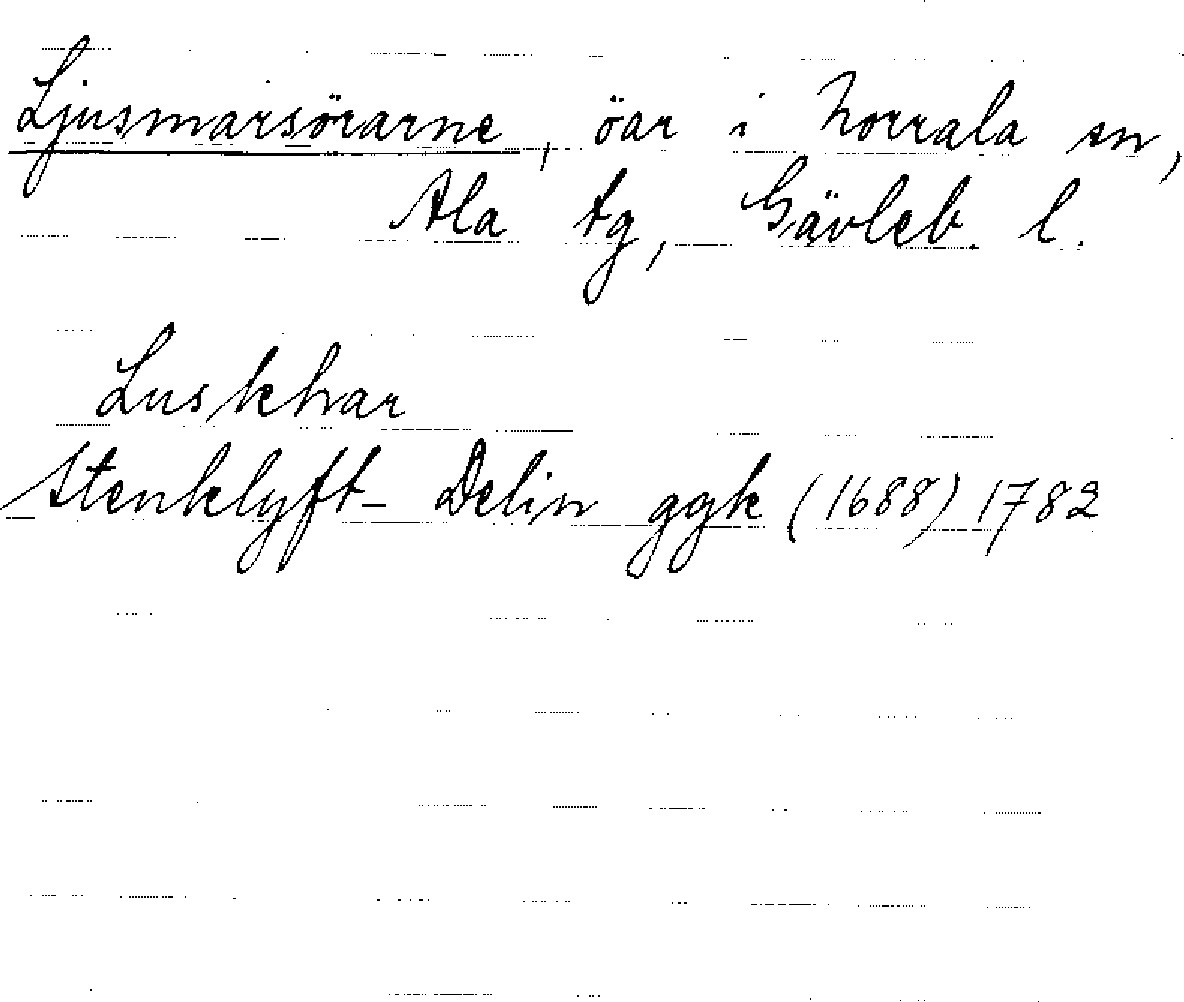 Ljusmarsörarne, öar i Norrala sn,
Ala tg, Gävleb. l.
Luskhar
Stenklyft- Delin ggk (1688) 1782